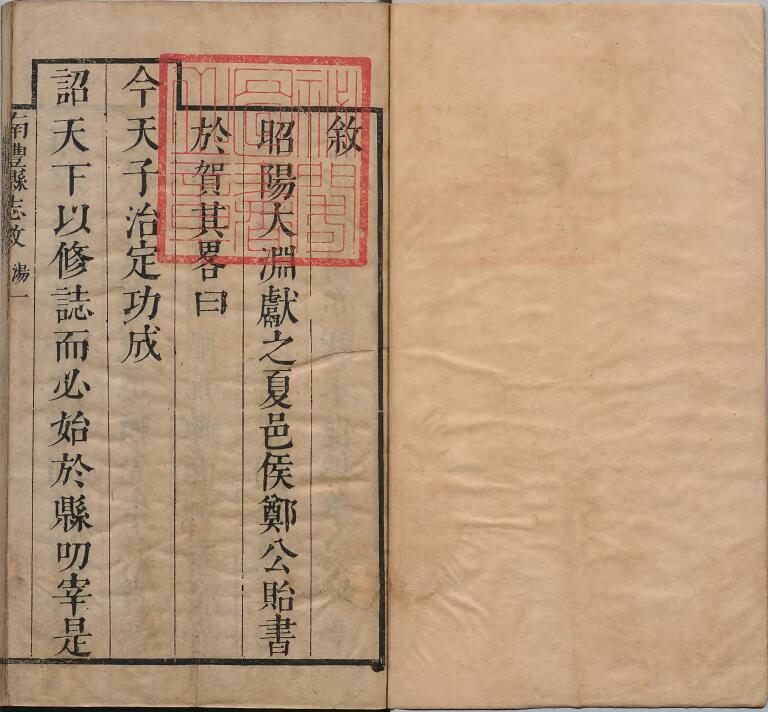 敘
昭陽大淵獻之夏邑侯鄭公貽書
於賀其畧曰
今天子治定功成
詔天下以修誌而必始於縣叨宰是
南豐縣志敘 湯一